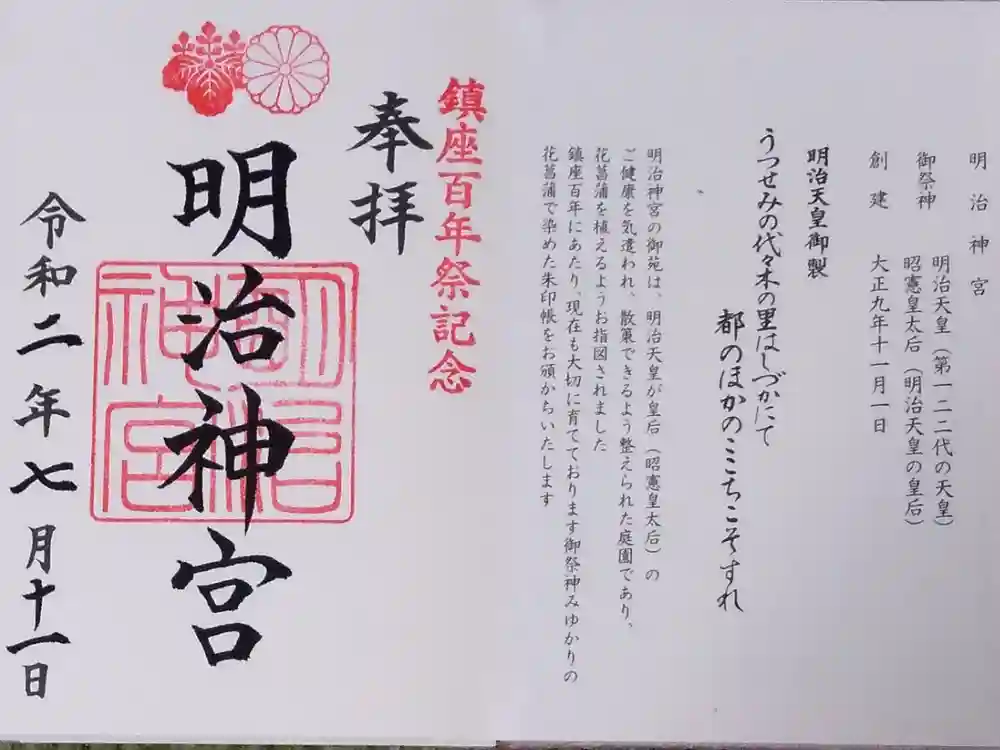 明治神宮
御祭神 明治天皇(第一二二代の天皇)
昭憲皇太后(明治天皇の皇后)
創建 大正九年十一月一日
明治天皇御製
うつせみの代々木の里はしづかにて
都のほかのこゝちこそすれ
明治神宮の御苑は、明治天皇が皇后(昭憲皇太后)の
ご健康を気遣われ、散策できるよう整えられた庭園であり、
花菖蒲を植えるようお指図されました
鎮座百年にあたり、現在も大切に育てております御祭神みゆかりの
花菖蒲で染めた朱印帳をお頒かちいたします
鎮座百年祭記念
奉拝
明治神宮
明治神宮
令和二年七月十一日